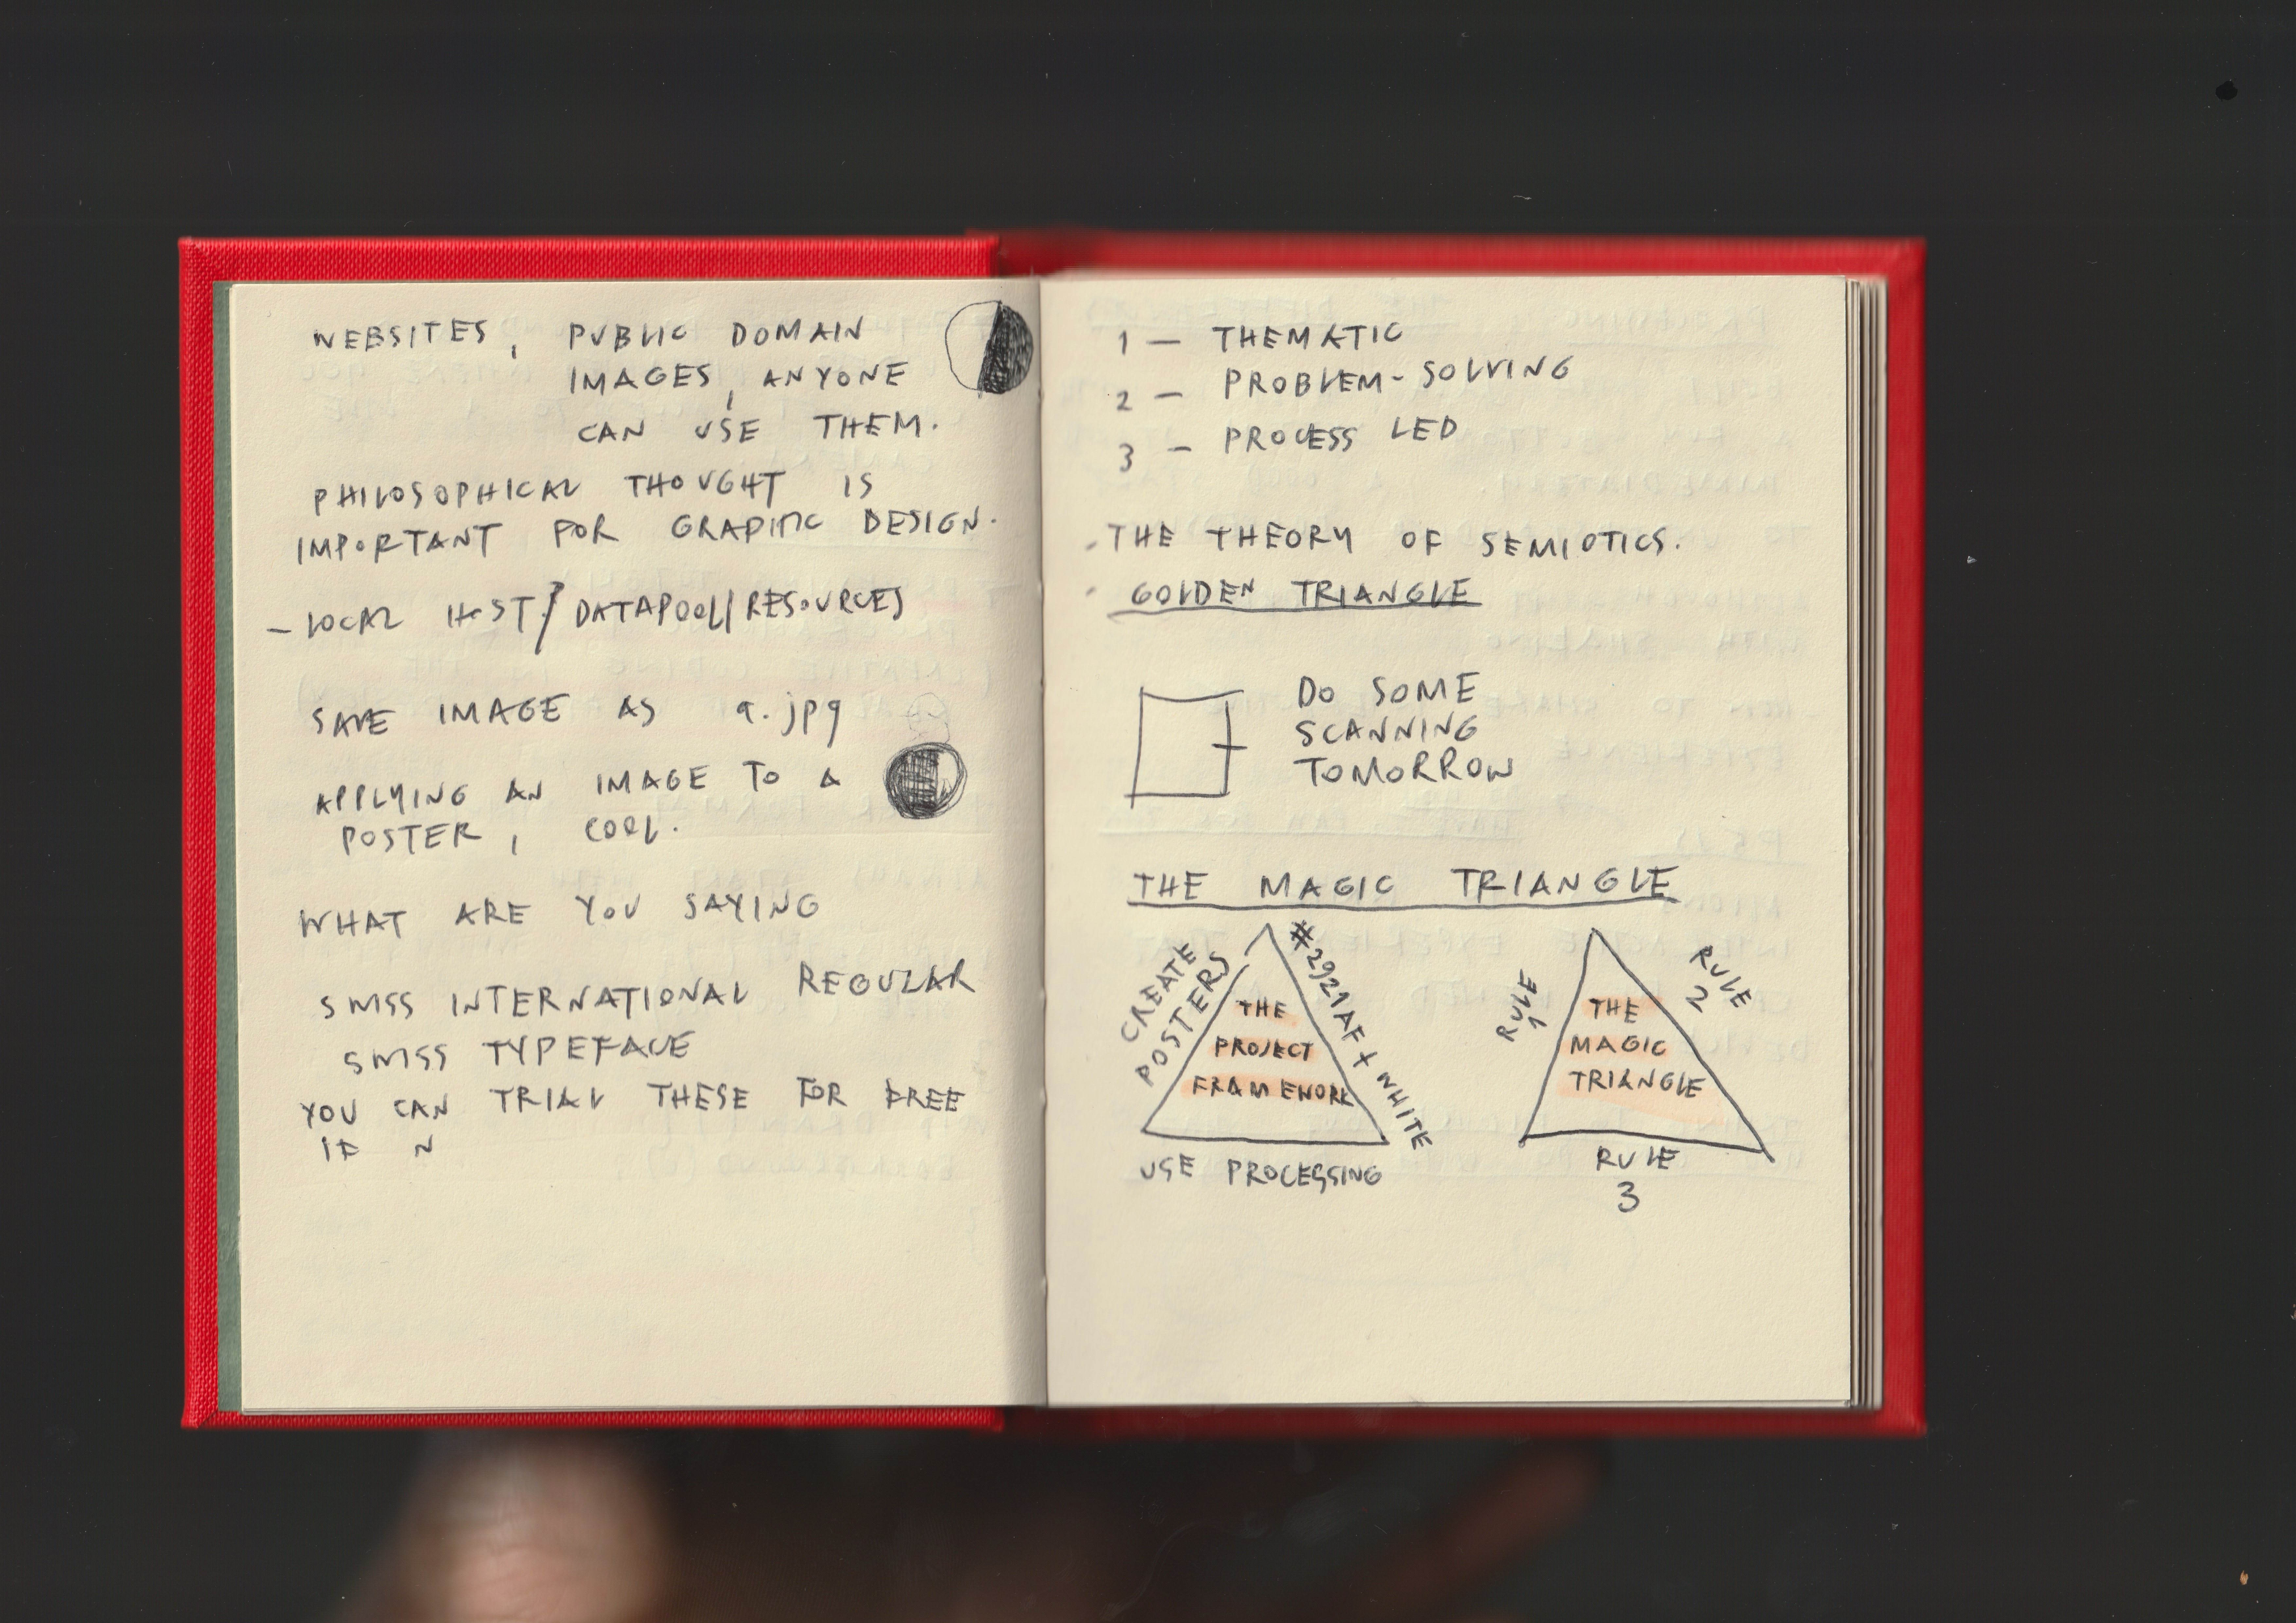 WEBSITES, PUBLIC DOMAIN
IMAGES, ANYONE
CAN USE THEM.
PHILOSOPHICAL THOUGHT IS
IMPORTANT FOR GRAPHIC DESIGN.
- LOCAL HOST / DATAPOOL / RESOURCES
SAVE IMAGE AS a.jpg
APPLYING AN IMAGE TO A
POSTER, COOL.
WHAT ARE YOU SAYING
SWISS INTERNATIONAL REGULAR
SWISS TYPEFACE
YOU CAN TRIAL THESE FOR FREE
IF N
1 — THEMATIC
2 — PROBLEM-SOLVING
3 — PROCESS LED
· THE THEORY OF SEMIOTICS.
· GOLDEN TRIANGLE
DO SOME
SCANNING
TOMORROW
THE MAGIC TRIANGLE
CREATE
POSTERS
#2921AF + WHITE
THE
PROJECT
FRAMEWORK
USE PROCESSING
RULE
1
RULE
2
THE
MAGIC
TRIANGLE
RULE
3